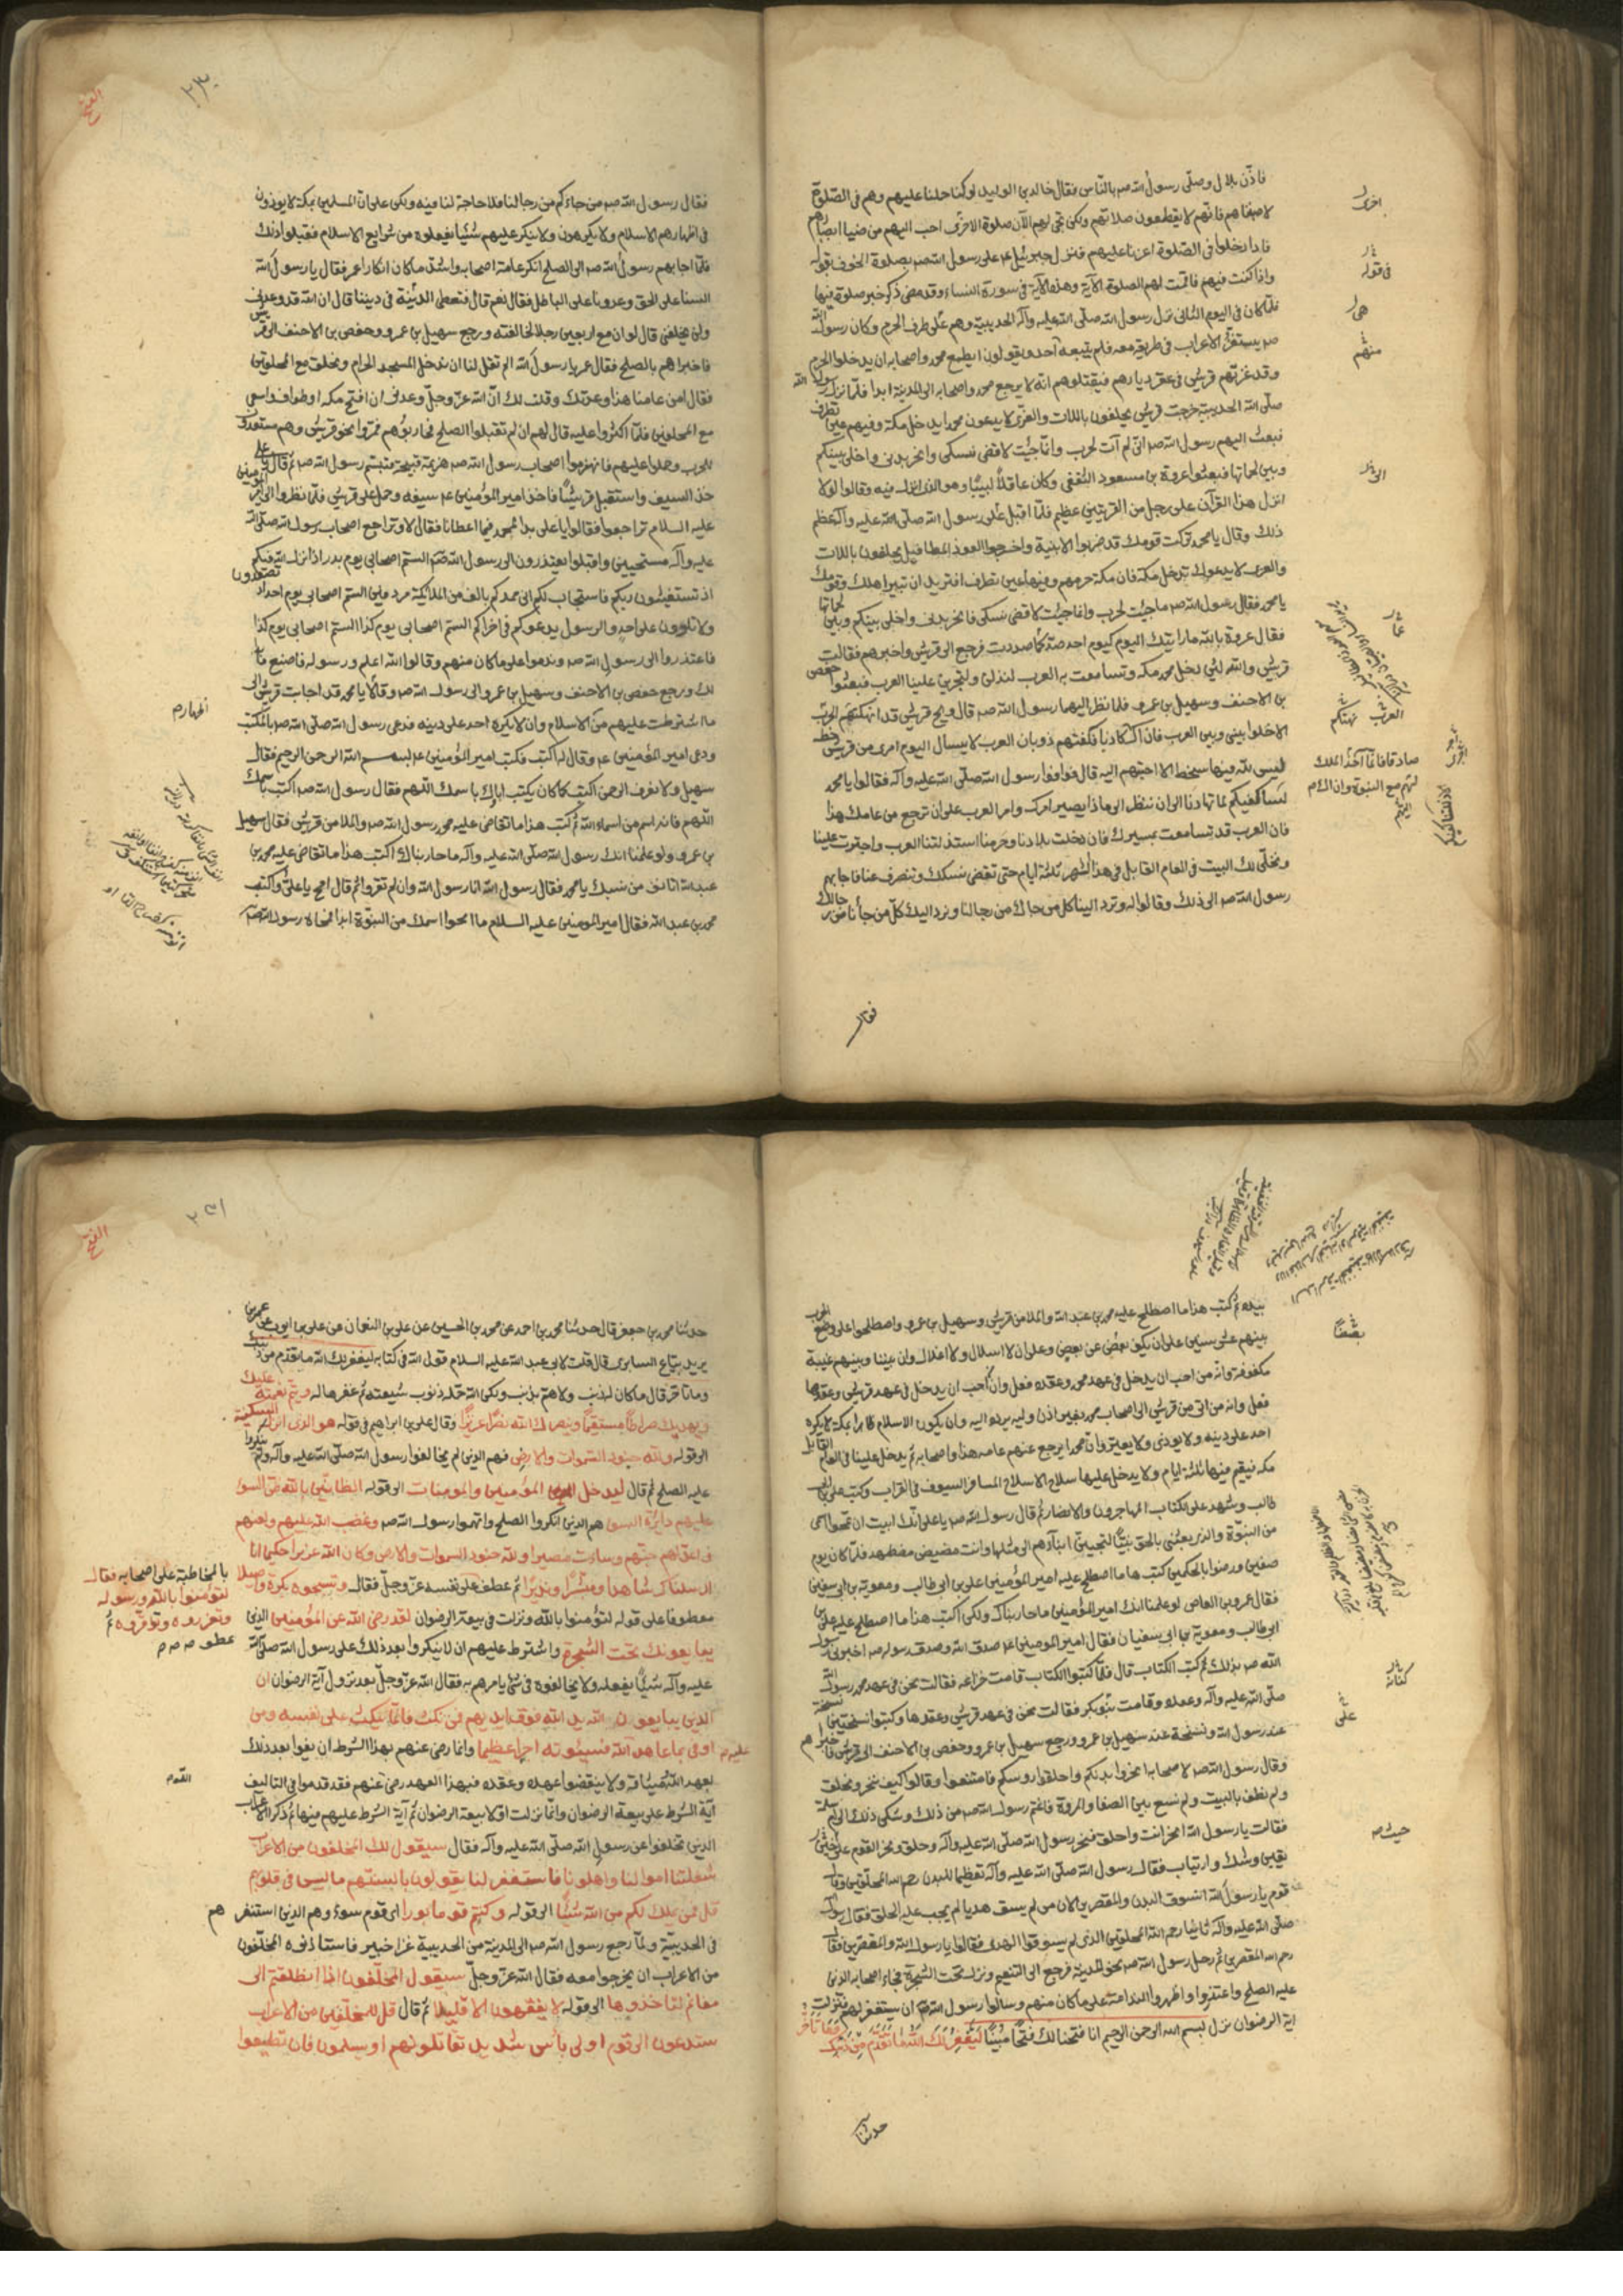 فاذّن بلال وصلّى رسول الله صم بالنّاس فقال خالد بن الوليد لو كنا حملنا عليهم وهم في الصّلوة
لاصبناهم فانّهم لا يقطعون صلاتهم ولكن تجئ لهم الآن صلوة الاخرى احب اليهم من ضياء ابصارهم
فاذا دخلوا في الصّلوة اغرنا عليهم فنزل جبرئيل ع على رسول الله صم بصلوة الخوف بقوله
واذا كنت فيهم فاقمت لهم الصلوة الآية وهذه الآية في سورة النساء وقد مضى ذكر خبر صلوة فيها
فلمّا كان في اليوم الثاني نزل رسول الله صلّى الله عليه وآله الحديبية وهم على طرف الحرم وكان رسول الله
صم يستنفر الاعراب في طريقه معه فلم يتبعه احد ويقولون ايطمع محمد واصحابه ان يدخلوا الحرم
وقد غزتهم قريش في عقر ديارهم فيقتلوهم انه لا يرجع محمد واصحابه الى المدينة ابدا فلمّا نزل رسول الله
صلّى الله الحديبية خرجت قريش يحلفون باللات والعزّى لا يدعون محمدا يدخل مكة وفيهم عين تطرف
فبعث اليهم رسول الله صم انّي لم آت لحرب وانّما جئت لاقضي نسكي وانحر بدني واخلي بينكم
وبين لحمانها فبعثوا عروة بن مسعود الثقفي وكان عاقلا لبيبا وهو الذي انزل الله فيه وقالوا لولا
انزل هذا القرآن على رجل من القريتين عظيم فلمّا اقبل على رسول الله صلّى الله عليه وآله عظم
ذلك وقال يا محمد تركت قومك قد ضربوا الابنية واخرجوا العوذ المطافيل يحلفون باللات
والعزى لا يدعوك تدخل مكة فان مكة حرمهم وفيها عين تطرف افتريد ان تبير اهلك وقومك
يا محمد فقال رسول الله صم ما جئت لحرب وانما جئت لاقضي نسكي فانحر بدني واخلي بينكم وبين لحمانها
فقال عروة بالله ما رايتك اليوم كيوم احد صدّ كما صددت فرجع الى قريش واخبرهم فقالت
قريش والله لئن دخل محمد مكة وتسامعت به العرب لنذلنّ ولتجترين علينا العرب فبعثوا حفص
بن الاحنف وسهيل بن عمرو فلما نظر اليهما رسول الله صم قال ويح قريش قد انهكتهم الحرب
الا خلوا بيني وبين العرب فان اك كاذبا كفتهم ذوبان العرب لا يسال اليوم امرء من قريش خطة
ليس لله فيها سخط الا اجبتهم اليه قال فوافوا رسول الله صلّى الله عليه وآله فقالوا يا محمد
فان العرب قد تسامعت بمسيرك فان دخلت بلادنا وحرمنا استذلتنا العرب واجترت علينا
ونخلّي لك البيت في العام القابل في هذا الشهر ثلثة ايام حتى تقضي نسكك وتنصرف عنا فاجابهم
رسول الله صم الى ذلك وقالوا له وترد الينا كل من جاءك من رجالنا ونرد اليك كلّ من جاءنا من رجالك
فقال
فقال رسول الله صم من جاءكم من رجالنا فلا حاجة لنا فيه ولكن على ان المسلمين بمكة لا يوذون
في اظهارهم الاسلام ولا يكرهون ولا ينكر عليهم شيئا يفعلونه من شرايع الاسلام فقبلوا ذلك
فلمّا اجابهم رسول الله صم الى الصلح انكر عامة اصحابه واشد ما كان انكارا عمر فقال يا رسول الله
السنا على الحق وعدونا على الباطل فقال نعم قال فنعطي الدنيّة في ديننا قال ان الله قد وعدني
ولن يخلفني قال لو ان مع اربعين رجلا لخالفته ورجع سهيل بن عمرو وحفص بن الاحنف الى قريش
فاخبراهم بالصلح فقال عمر يا رسول الله الم تقل لنا ان ندخل المسجد الحرام ونحلق مع المحلقين
فقال امن عامنا هذا وعدتك وقلت لك انّ الله عزّ وجلّ وعدني ان افتح مكه واطوف واسعى
مع المحلقين فلمّا اكثروا عليه قال لهم ان لم تقبلوا الصلح فحاربوهم فمرّوا نحو قريش وهم مستعدّون
للحرب وحملوا عليهم فانهزموا اصحاب رسول الله صم هزيمة قبيحة فتبسّم رسول الله صم ثم قال يا علي
خذ السيف واستقبل قريشا فاخذ امير المؤمنين ع سيفه وحمل على قريش فلمّا نظروا الى امير المؤمنين
عليه السلام تراجعوا فقالوا يا علي بدا لمحمد فيما اعطانا فقال لا وتراجع اصحاب رسول الله صلّى الله
عليه وآله مستحيين واقبلوا يعتذرون الى رسول الله صم الستم اصحابي يوم بدر اذ انزل الله فيكم
اذ تستغيثون ربكم فاستجاب لكم اني ممدكم بالف من الملائكة مردفين الستم اصحابي يوم احد اذ تصعدون
ولا تلوون على احد والرسول يدعوكم في اخراكم الستم اصحابي يوم كذا الستم اصحابي يوم كذا
فاعتذروا الى رسول الله صم وندموا على ما كان منهم وقالوا الله اعلم ورسوله فاصنع ما بدا
لك ورجع حفص بن الاحنف وسهيل بن عمرو الى رسول الله صم وقالا يا محمد قد اجابت قريش الى
ما اشترطت عليهم من الاسلام وان لا يكره احد على دينه فدعى رسول الله صلّى الله صم بالمكتب
ودعى امير المؤمنين ع وقال له اكتب فكتب امير المؤمنين ع بسم الله الرحمن الرحيم فقال
سهيل ولا نعرف الرحمن اكتب كما كان يكتب اباؤك باسمك اللهم فقال رسول الله صم اكتب باسمك
اللهم فانه اسم من اسماء الله ثم كتب هذا ما تقاضى عليه محمد رسول الله صم والملا من قريش فقال سهيل
بن عمرو ولو علمنا انك رسول الله صلّى الله عليه وآله ما حاربناك اكتب هذا ما تقاضى عليه محمد بن
عبد الله اتانف من نسبك يا محمد فقال رسول الله انا رسول الله وان لم تقروا ثم قال امح يا علي واكتب
محمد بن عبد الله فقال امير المؤمنين عليه السلام ما امحوا اسمك من النبوّة ابدا فمحاه رسول الله صم
بيده ثم كتب هذا ما اصطلح عليه محمد بن عبد الله والملا من قريش وسهيل بن عمرو واصطلحوا على وضع الحرب
بينهم عشر سنين على ان يكف بعض عن بعض وعلى ان لا اسلال ولا اغلال وان بيننا وبينهم غيبة
مكفوفة وانّه من احب ان يدخل في عهد محمد وعقده فعل وان احب ان يدخل في عهد قريش وعقدها
فعل وانه من اتى من قريش الى اصحاب محمد بغير اذن وليه يرده اليه وان يكون الاسلام ظاهرا بمكة لا يكره
احد على دينه ولا يوذى ولا يعير وان محمدا يرجع عنهم عامه هذا واصحابه ثم يدخل علينا في العام القابل
مكه فيقيم فيها ثلثة ايام ولا يدخل عليها سلاح الا سلاح المسافر السيوف في القراب وكتب علي بن ابي
طالب وشهد على الكتاب المهاجرون والانصار ثم قال رسول الله صم يا علي انّك ابيت ان تمحوا اسمي
من النبوّة والذي بعثني بالحق نبيّا لتجيبنّ ابناءهم الى مثلها وانت مضيض مضطهد فلمّا كان يوم
صفين ورضوا بالحكمين كتب هذا ما اصطلح عليه امير المؤمنين علي بن ابي طالب ومعوية بن ابي سفين
فقال عمرو بن العاص لو علمنا انك امير المؤمنين ما حاربناك ولكن اكتب هذا ما اصطلح عليه علي بن
ابي طالب ومعوية بن ابي سفيان فقال امير المومنين ع صدق الله وصدق رسوله صم اخبرني رسول
الله صم بذلك ثم كتب الكتاب قال فلمّا كتبوا الكتاب قامت خزاعة فقالت نحن في عهد محمد رسول الله
صلّى الله عليه وآله وعقده وقامت بنو بكر فقالت نحن في عهد قريش وعقدها وكتبوا نسختين نسخة
عند رسول الله ونسخة عند سهيل بن عمرو ورجع سهيل بن عمرو وحفص بن الاحنف الى قريش فاخبراهم
وقال رسول الله صم لاصحابه انحروا بدنكم واحلقوا روسكم فامتنعوا وقالوا كيف ننحر ونحلق
ولم نطف بالبيت ولم نسع بين الصفا والمروة فاغتم رسول الله صم من ذلك وشكى ذلك الى ام سلمة
فقالت يا رسول الله انحر انت واحلق فنحر رسول الله صلّى الله عليه وآله وحلق ونحر القوم على خبث
يقين وشك وارتياب فقال رسول الله صلّى الله عليه وآله تعظيما للبدن رحم الله المحلقين وقال
قوم يا رسول الله انسوق البدن والمقصرين لان من لم يسق هديا لم يجب عليه الحلق فقال رسول الله
صلّى الله عليه وآله ثانيا رحم الله المحلقين الذي لم يسوقوا الهدي فقالوا يا رسول الله والمقصرين فقال
رحم الله المقصرين ثم رحل رسول الله صم نحو المدينة فرجع الى التنعيم ونزل تحت الشجرة فجاء اصحابه الذين
عليه الصلح واعتذروا واظهروا الندامة على ما كان منهم وسالوا رسول الله صم ان يستغفر لهم فنزلت
آية الرضوان نزل بسم الله الرحمن الرحيم انا فتحنا لك فتحا مبينا ليغفر لك الله ما تقدم من ذنبك وما تاخر
حدثنا
حدثنا محمد بن جعفر قال حدثنا محمد بن احمد عن محمد بن الحسين عن علي بن النعمان عن علي بن ايوب عن عمر بن
يزيد بياع السابري قال قلت لابي عبد الله عليه السلام قول الله في كتابه ليغفر لك الله ما تقدم من ذنبك
وما تاخر قال ما كان له ذنب ولا هم بذنب ولكن الله حمله ذنوب شيعته ثم غفرها له ويتم نعمته عليك
ويهديك صراطا مستقيما وينصرك الله نصرا عزيزا وقال علي بن ابراهيم في قوله هو الذي انزل السكينة
الى قوله ولله جنود السموات والارض فهم الذين لم يخالفوا رسول الله صلّى الله عليه وآله ولم ينكروا
عليه الصلح ثم قال ليدخل المؤمنين والمومنات الى قوله الظانّين بالله ظن السوء
عليهم دائرة السوء هم الذين انكروا الصلح واتهموا رسول الله صم وغضب الله عليهم ولعنهم
واعدّ لهم جهنم وساءت مصيرا ولله جنود السموات والارض وكان الله عزيزا حكيما انا
ارسلناك شاهدا ومبشّرا ونذيرا ثم عطف على نفسه عزّ وجلّ فقال وتسبحوه بكرة واصيلا
معطوفا على قوله لتؤمنوا بالله ونزلت في بيعة الرضوان لقد رضي الله عن المؤمنين الذين
يبايعونك تحت الشجرة واشترط عليهم ان لا ينكروا بعد ذلك على رسول الله صلّى الله
عليه وآله شيئا يفعله ولا يخالفوه في شئ يامرهم به فقال الله عزّ وجلّ بعد نزول آية الرضوان ان
الذين يبايعون الله يد الله فوق ايديهم فمن نكث فانّما ينكث على نفسه ومن
اوفى بما عاهد الله فسيؤته اجرا عظيما وانما رضي عنهم بهذا الشرط ان يفوا بعد ذلك
بعهد الله وميثاقه ولا ينقضوا عهده وعقده فبهذا العهد رضي عنهم فقد قدموا في التاليف
آية الشرط على بيعة الرضوان وانّما نزلت اولا بيعة الرضوان ثم آية الشرط عليهم فيها ثم ذكر الاعراب
الذين تخلّفوا عن رسول الله صلّى الله عليه وآله فقال سيقول لك المخلفون من الاعراب
شغلتنا اموالنا واهلونا فاستغفر لنا يقولون بالسنتهم ما ليس في قلوبهم
قل فمن يملك لكم من الله شيئا الى قوله وكنتم قوما بورا اي قوم سوء وهم الذين استنفرهم
في الحديبيّة ولمّا رجع رسول الله صم الى المدينة من الحديبية غزا خيبر فاستاذنوه المخلّفون
من الاعراب ان يخرجوا معه فقال الله عزّ وجلّ سيقول المخلّفون اذا انطلقتم الى
مغانم لتاخذوها الى قوله لا يفقهون الا قليلا ثم قال قل للمخلّفين من الاعراب
ستدعون الى قوم اولي باس شديد تقاتلونهم او يسلمون فان تطيعوا